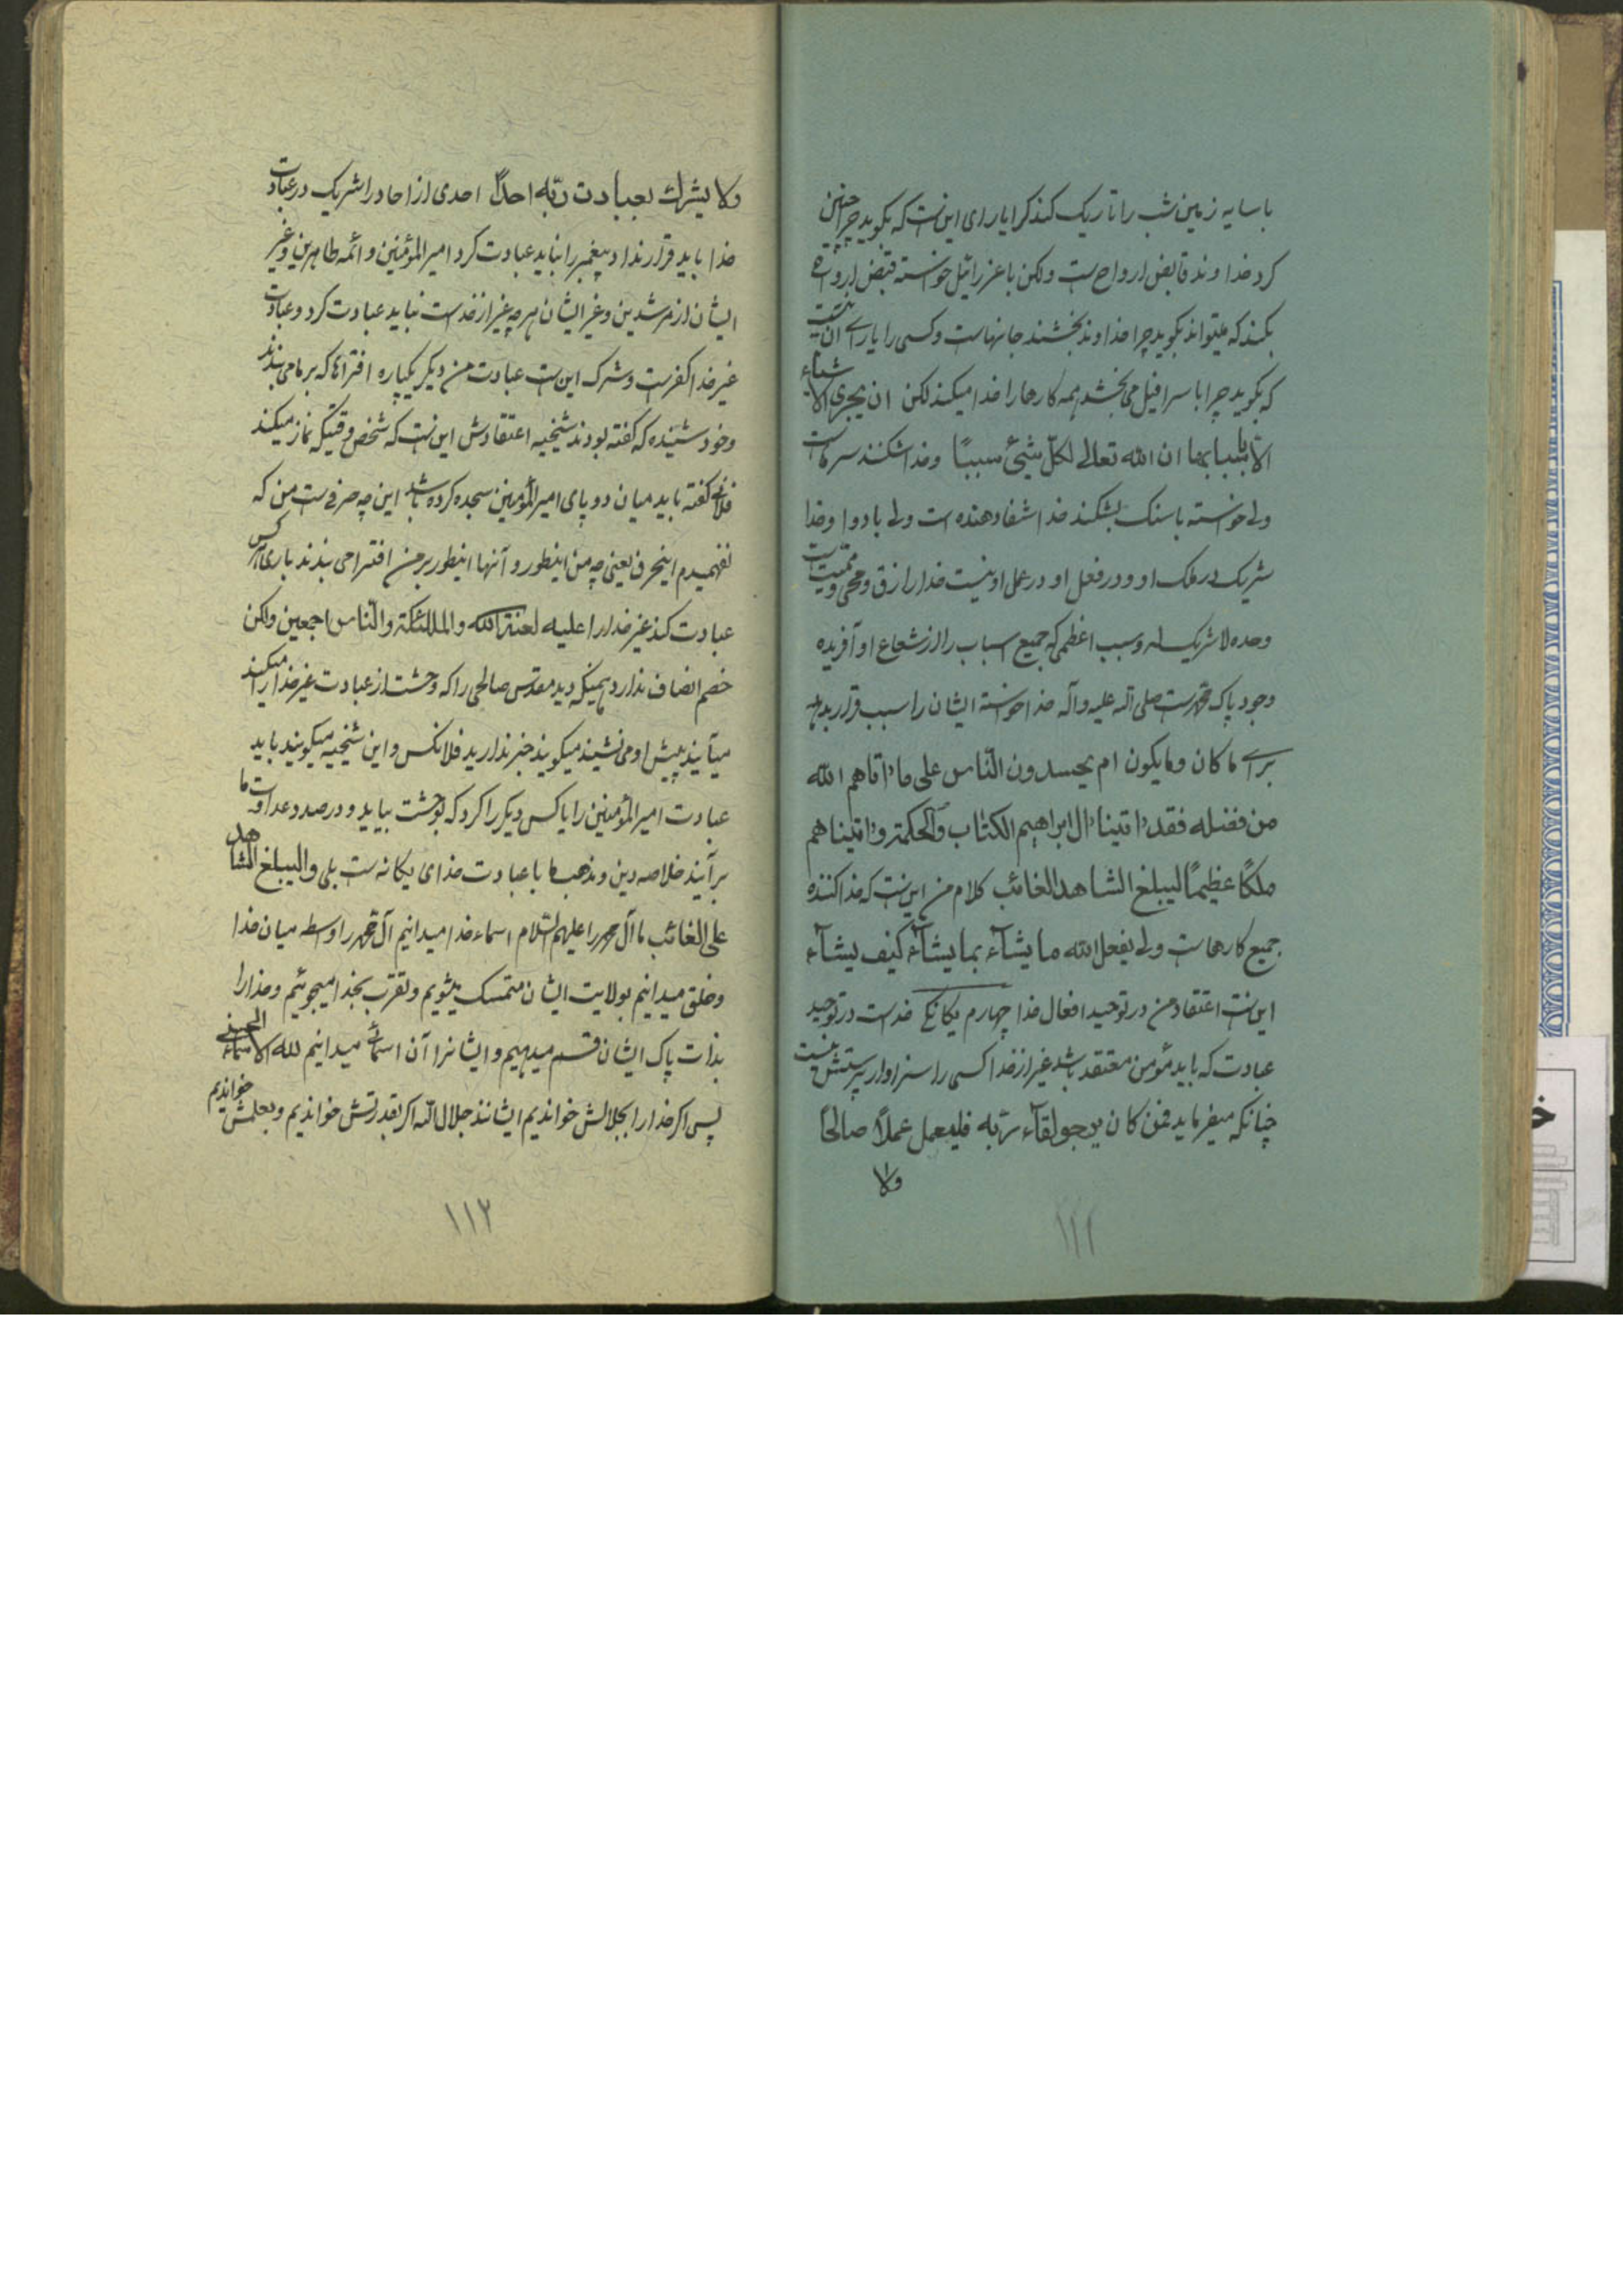 با سایه زمین شب را تاریک کند کرا یارای این است که بگوید چرا چنین
کرد خدا وند قابض ارواح است ولکن با عزرائیل خواسته قبض ارواح
بکند که میتواند بگوید چرا خدا وند بخشنده جانهاست و کسی را یارای آن نیست
که بگوید چرا با سرافیل می بخشد همه کارها را خدا میکند لکن ان یجری الاشیاء
الا باسبابها ان الله تعالی لکل شیئ سببا و خدا شکننده سرهاست
ولی خواسته با سنک بشکند خدا شفا دهنده است ولی با دوا و خدا
شریک در ملک او و در فعل او در عمل او نیست خدا را رازق و محیی و ممیت است
وحده لا شریک له و سبب اعظمی که جمیع اسباب را از شعاع او آفریده
وجود پاک محمد است صلی الله علیه و آله خدا خواسته ایشان را سبب قرار بدهد
برای ما کان و ما یکون ام یحسدون الناس علی ما اتاهم الله
من فضله فقد اتینا ال ابراهیم الکتاب والحکمة و اتیناهم
ملکا عظیما لیبلغ الشاهد الغائب کلام من این است که خدا کننده
جمیع کارهاست ولی یفعل الله ما یشآء بما یشآء کیف یشآء
این است اعتقاد من در توحید افعال خدا چهارم یکانکی خداست در توحید
عبادت که باید مؤمن معتقد باشد غیر از خدا کسی را سزاوار پرستش نیست
چنانکه میفرماید فمن کان یرجو لقآء ربه فلیعمل عملا صالحا
ولا
۱۱۲
ولا یشرک بعبادت ربه احدا احدی از احاد را شریک در عبادت
خدا باید قرار نداد پیغمبر را نباید عبادت کرد امیر المؤمنین و ائمه طاهرین و غیر
ایشان از مرشدین و غیر ایشان هر چه غیر از خداست نباید عبادت کرد و عبادت
غیر خدا کفر است و شرک این است عبادت من دیگر یکپاره افتراها که بر ما می بندند
و خود شنیده که گفته بودند شیخیه اعتقادش این است که شخص وقتیکه نماز میکند
فلانی گفته باید میان دو پای امیر المؤمنین سجده کرده باشد این چه حرفی است من که
نفهمیدم اینحرف یعنی چه من اینطور و آنها اینطور بر من افترا می بندند باری هر کس
عبادت کند غیر خدا را علیه لعنة الله والملائکة والناس اجمعین ولکن
خصم انصاف ندارد همینکه دید مقدس صالحی را که وحشت از عبادت غیر خدا را میکند
میآیند پیش او می نشینند میگویند خبر ندارید فلانکس و این شیخیه میگویند باید
عبادت امیر المؤمنین را یا کس دیگر را کرد که او وحشت بیاید و در صدد عداوت ما
برآیند خلاصه دین و مذهب ما با عبادت خدای یکانه است بلی و لیبلغ الشاهد
علی الغائب ما آل محمد را علیهم السلام اسماء خدا میدانیم آل محمد را واسطه میان خدا
و خلق میدانیم بولایت ایشان متمسک میشویم و تقرب بخدا میجوئیم و خدا را
بذات پاک ایشان قسم میدهیم و ایشانرا آن اسمائی میدانیم لله الاسماء الحسنی
پس اگر خدا را بجلالش خواندیم ایشانند جلال الله اگر بقدرتش خواندیم و بعلمش خواندیم
۱۱۳